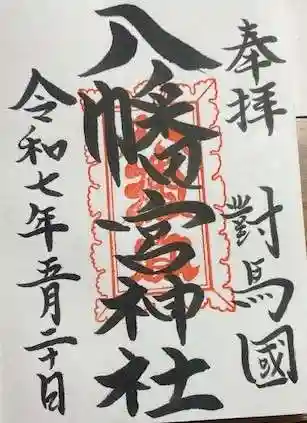 奉拝
對馬國
八幡宮神社
令和七年五月二十日